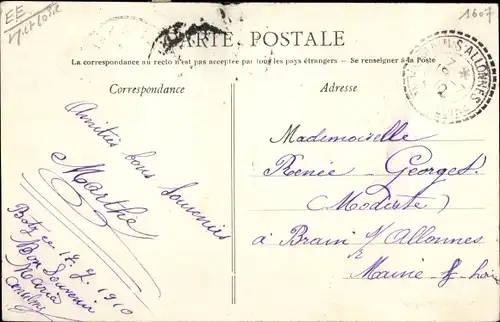 EE
M et Loire
1607
CARTE POSTALE
La correspondance au recto n'est pas acceptée par tous les pays étrangers — Se renseigner à la Poste
Correspondance
Amitiés bons souvenirs
Marthe
ce 17. 7. 1910
Bon Souvenir
Maria
Adresse
BRAIN S ALLONNES
Mademoiselle
Renée Georges
(Modiste)
à Brain s/ Allonnes
Maine & Loire